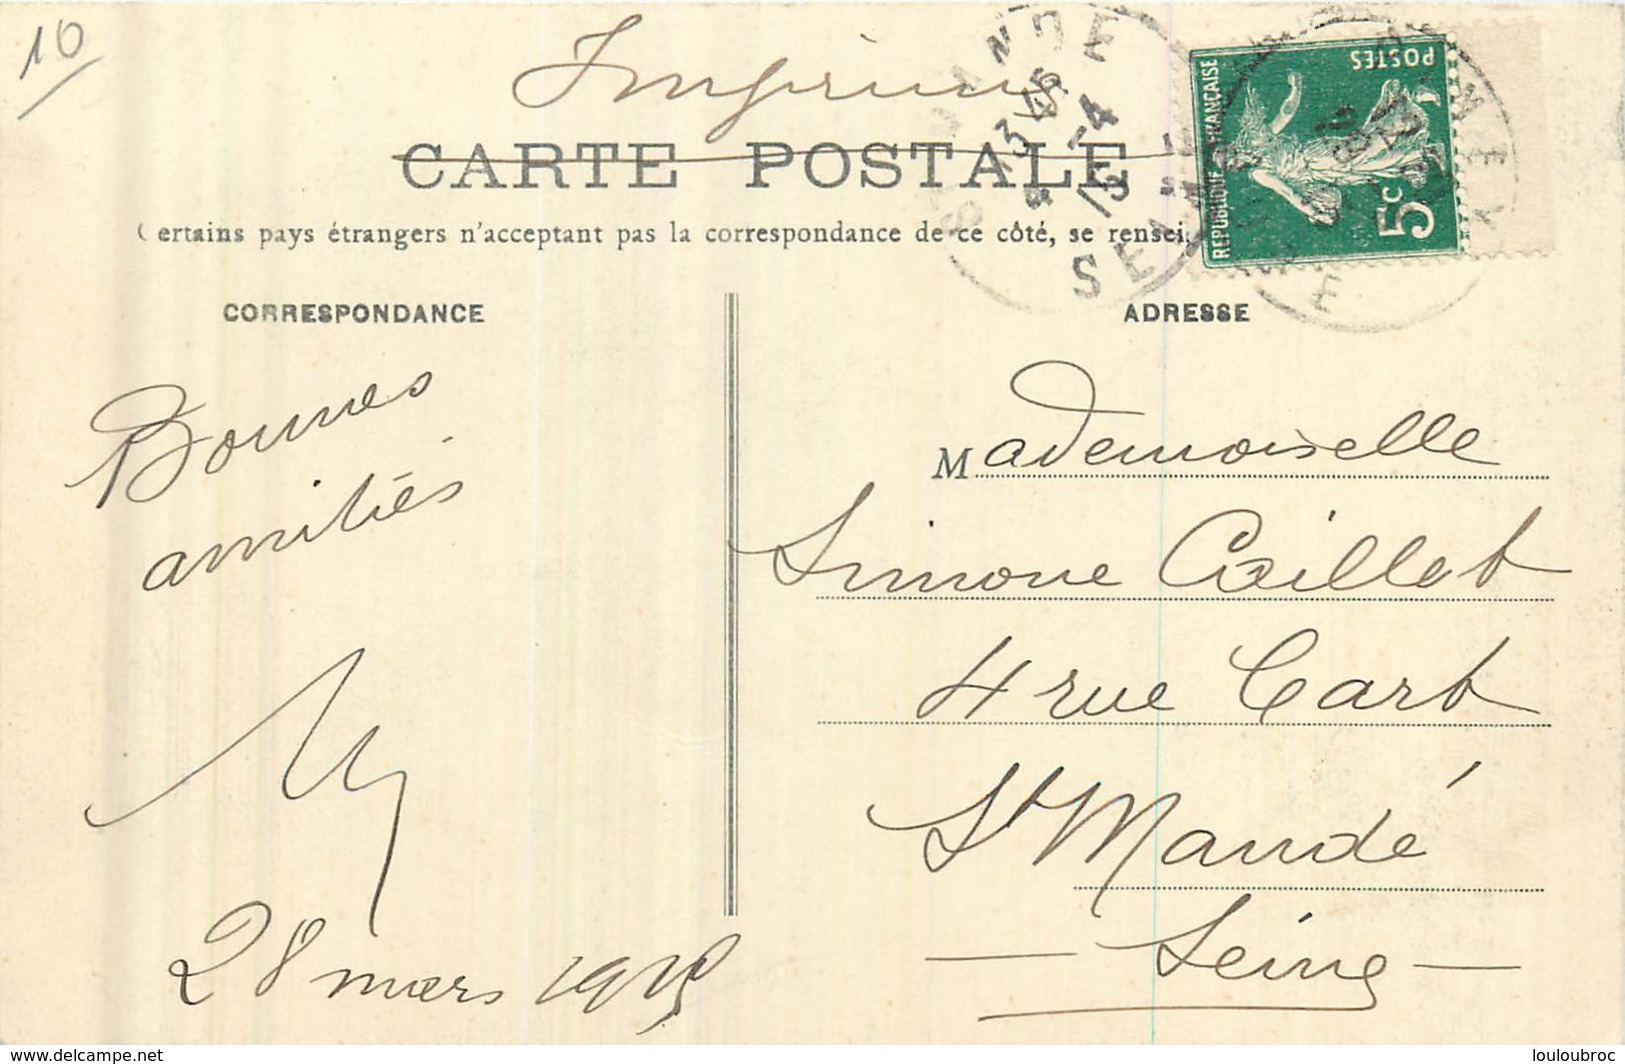 10
Imprimé
CARTE POSTALE
Certains pays étrangers n'acceptent pas la correspondance de ce côté, se rensei
REPUBLIQUE FRANÇAISE
POSTES
5c
ST MANDE
3 45
4 -4
15
SEINE
CORRESPONDANCE
ADRESSE
Bonnes
amitiés
28 mars 1915
Mademoiselle
Simone Caillet
4 rue Cart
St Mandé
— Seine —
www.delcampe.net
louloubroc